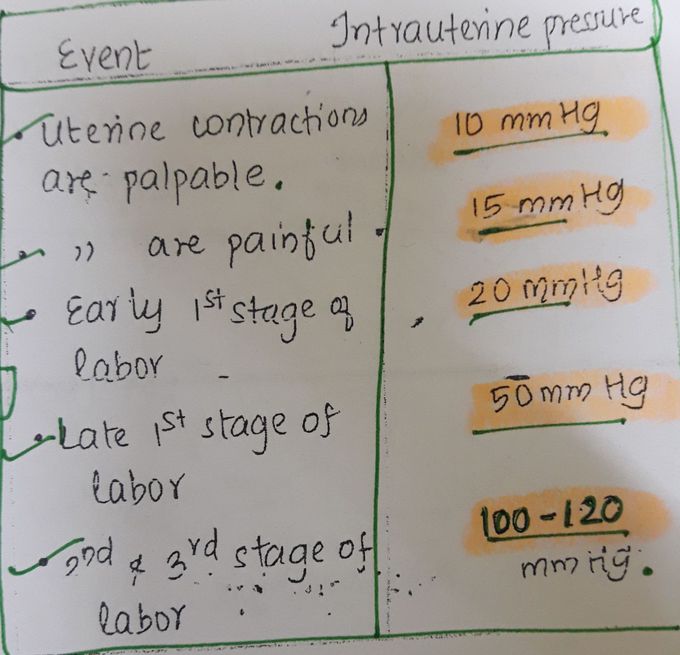 Event Intrauterine pressure
• Uterine contractions 10 mm Hg
are palpable.
• ,, are painful. 15 mm Hg
• Early 1st stage of 20 mmHg
labor
• Late 1st stage of 50 mm Hg
labor
• 2nd & 3rd stage of 100-120
labor mm Hg.